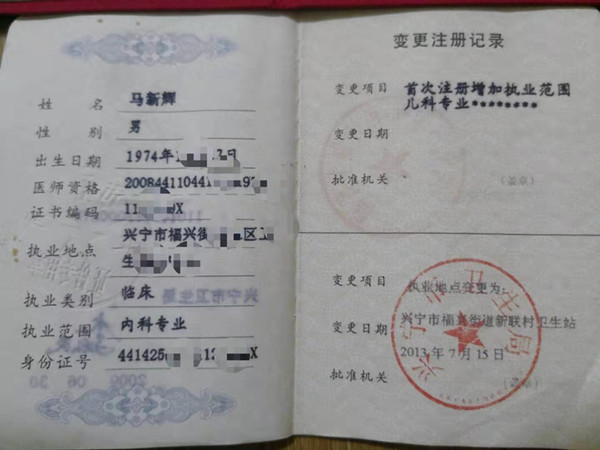 姓 名 马新辉
性 别 男
出生日期 1974年1
医师资格 2008441104419
证书编码 11 X
执业地点 兴宁市福兴街 区卫
生
执业类别 临床
执业范围 内科专业
身份证号 441425 1 12 X
变更注册记录
变更项目 首次注册增加执业范围
儿科专业********
变更日期
批准机关
(签章)
变更项目 执业地点变更为:
兴宁市福兴街道新联村卫生站
变更日期
2013年7月15日
批准机关
(签章)
兴宁市卫生局